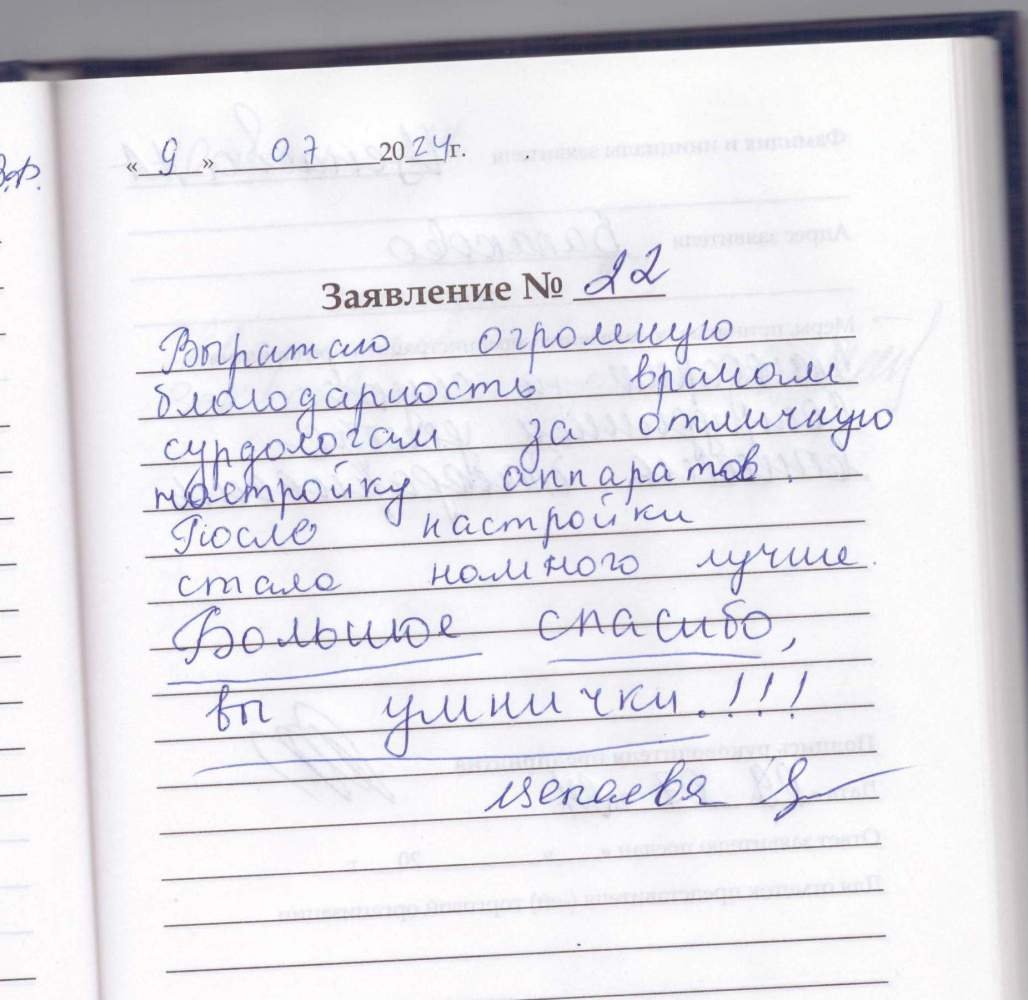 « 9 » 07 2024г.
Заявление № 22
Выражаю огромную
благодарность врачам
сурдологам за отличную
настройку аппаратов.
После настройки
стало намного лучше.
Большое спасибо,
вы умнички.!!!